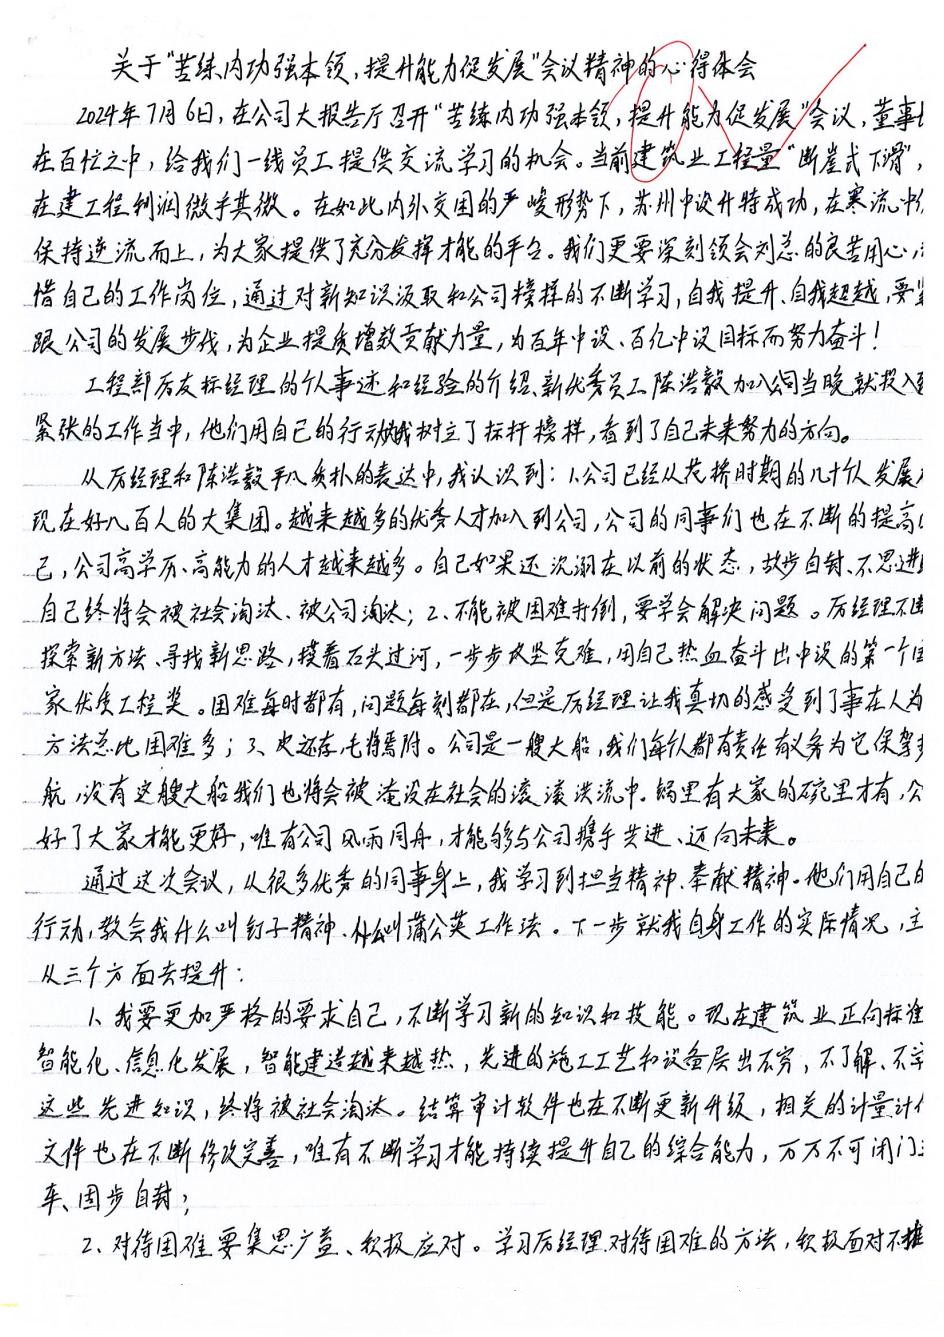 关于“苦练内功强本领,提升能力促发展”会议精神的心得体会
2024年7月6日,在公司大报告厅召开“苦练内功强本领,提升能力促发展”会议,董事
在百忙之中,给我们一线员工提供交流学习的机会。当前建筑业工程量“断崖式下滑”,
在建工程利润微乎其微。在如此内外交困的严峻形势下,苏州中设升特成功,在寒流中
保持逆流而上,为大家提供了充分发挥才能的平台。我们更要深刻领会刘总的良苦用心,
惜自己的工作岗位,通过对新知识汲取和公司榜样的不断学习,自我提升、自我超越,要紧
跟公司的发展步伐,为企业提质增效贡献力量,为百年中设、百亿中设目标而努力奋斗!
工程部厉友标经理的个人事迹和经验的介绍、新优秀员工陈浩毅加入公司当晚就投入到
紧张的工作当中,他们用自己的行动为我树立了标杆榜样,看到了自己未来努力的方向。
从厉经理和陈浩毅平凡质朴的表达中,我认识到:1、公司已经从花桥时期的几十个人发展
现在好几百人的大集团。越来越多的优秀人才加入到公司,公司的同事们也在不断的提高
己,公司高学历、高能力的人才越来越多。自己如果还沉溺在以前的状态,故步自封、不思进
自己终将会被社会淘汰、被公司淘汰;2、不能被困难打倒,要学会解决问题。厉经理不断
探索新方法、寻找新思路,摸着石头过河,一步步攻坚克难,用自己热血奋斗出中设的第一个国
家优质工程奖。困难每时都有,问题每刻都在,但是厉经理让我真切的感受到了事在人为
方法总比困难多;3、皮还存,毛将焉附。公司是一艘大船,我们每个人都有责任有义务为它保驾
航,没有这艘大船我们也将会被淹没在社会的滚滚洪流中。锅里有大家的碗里才有,公
好了大家才能更好,唯有公司风雨同舟,才能够与公司携手共进、迈向未来。
通过这次会议,从很多优秀的同事身上,我学习到担当精神、奉献精神。他们用自己的
行动,教会我什么叫钉子精神、什么叫蒲公英工作法。下一步就我自身工作的实际情况,主
从三个方面去提升:
1、我要更加严格的要求自己,不断学习新的知识和技能。现在建筑业正向标准
智能化、信息化发展,智能建造越来越热,先进的施工工艺和设备层出不穷,不了解、不学
这些先进知识,终将被社会淘汰。结算审计软件也在不断更新升级,相关的计量计价
文件也在不断修改完善,唯有不断学习才能持续提升自己的综合能力,万万不可闭门
车、固步自封;
2、对待困难要集思广益、积极应对。学习厉经理对待困难的方法,积极面对不推